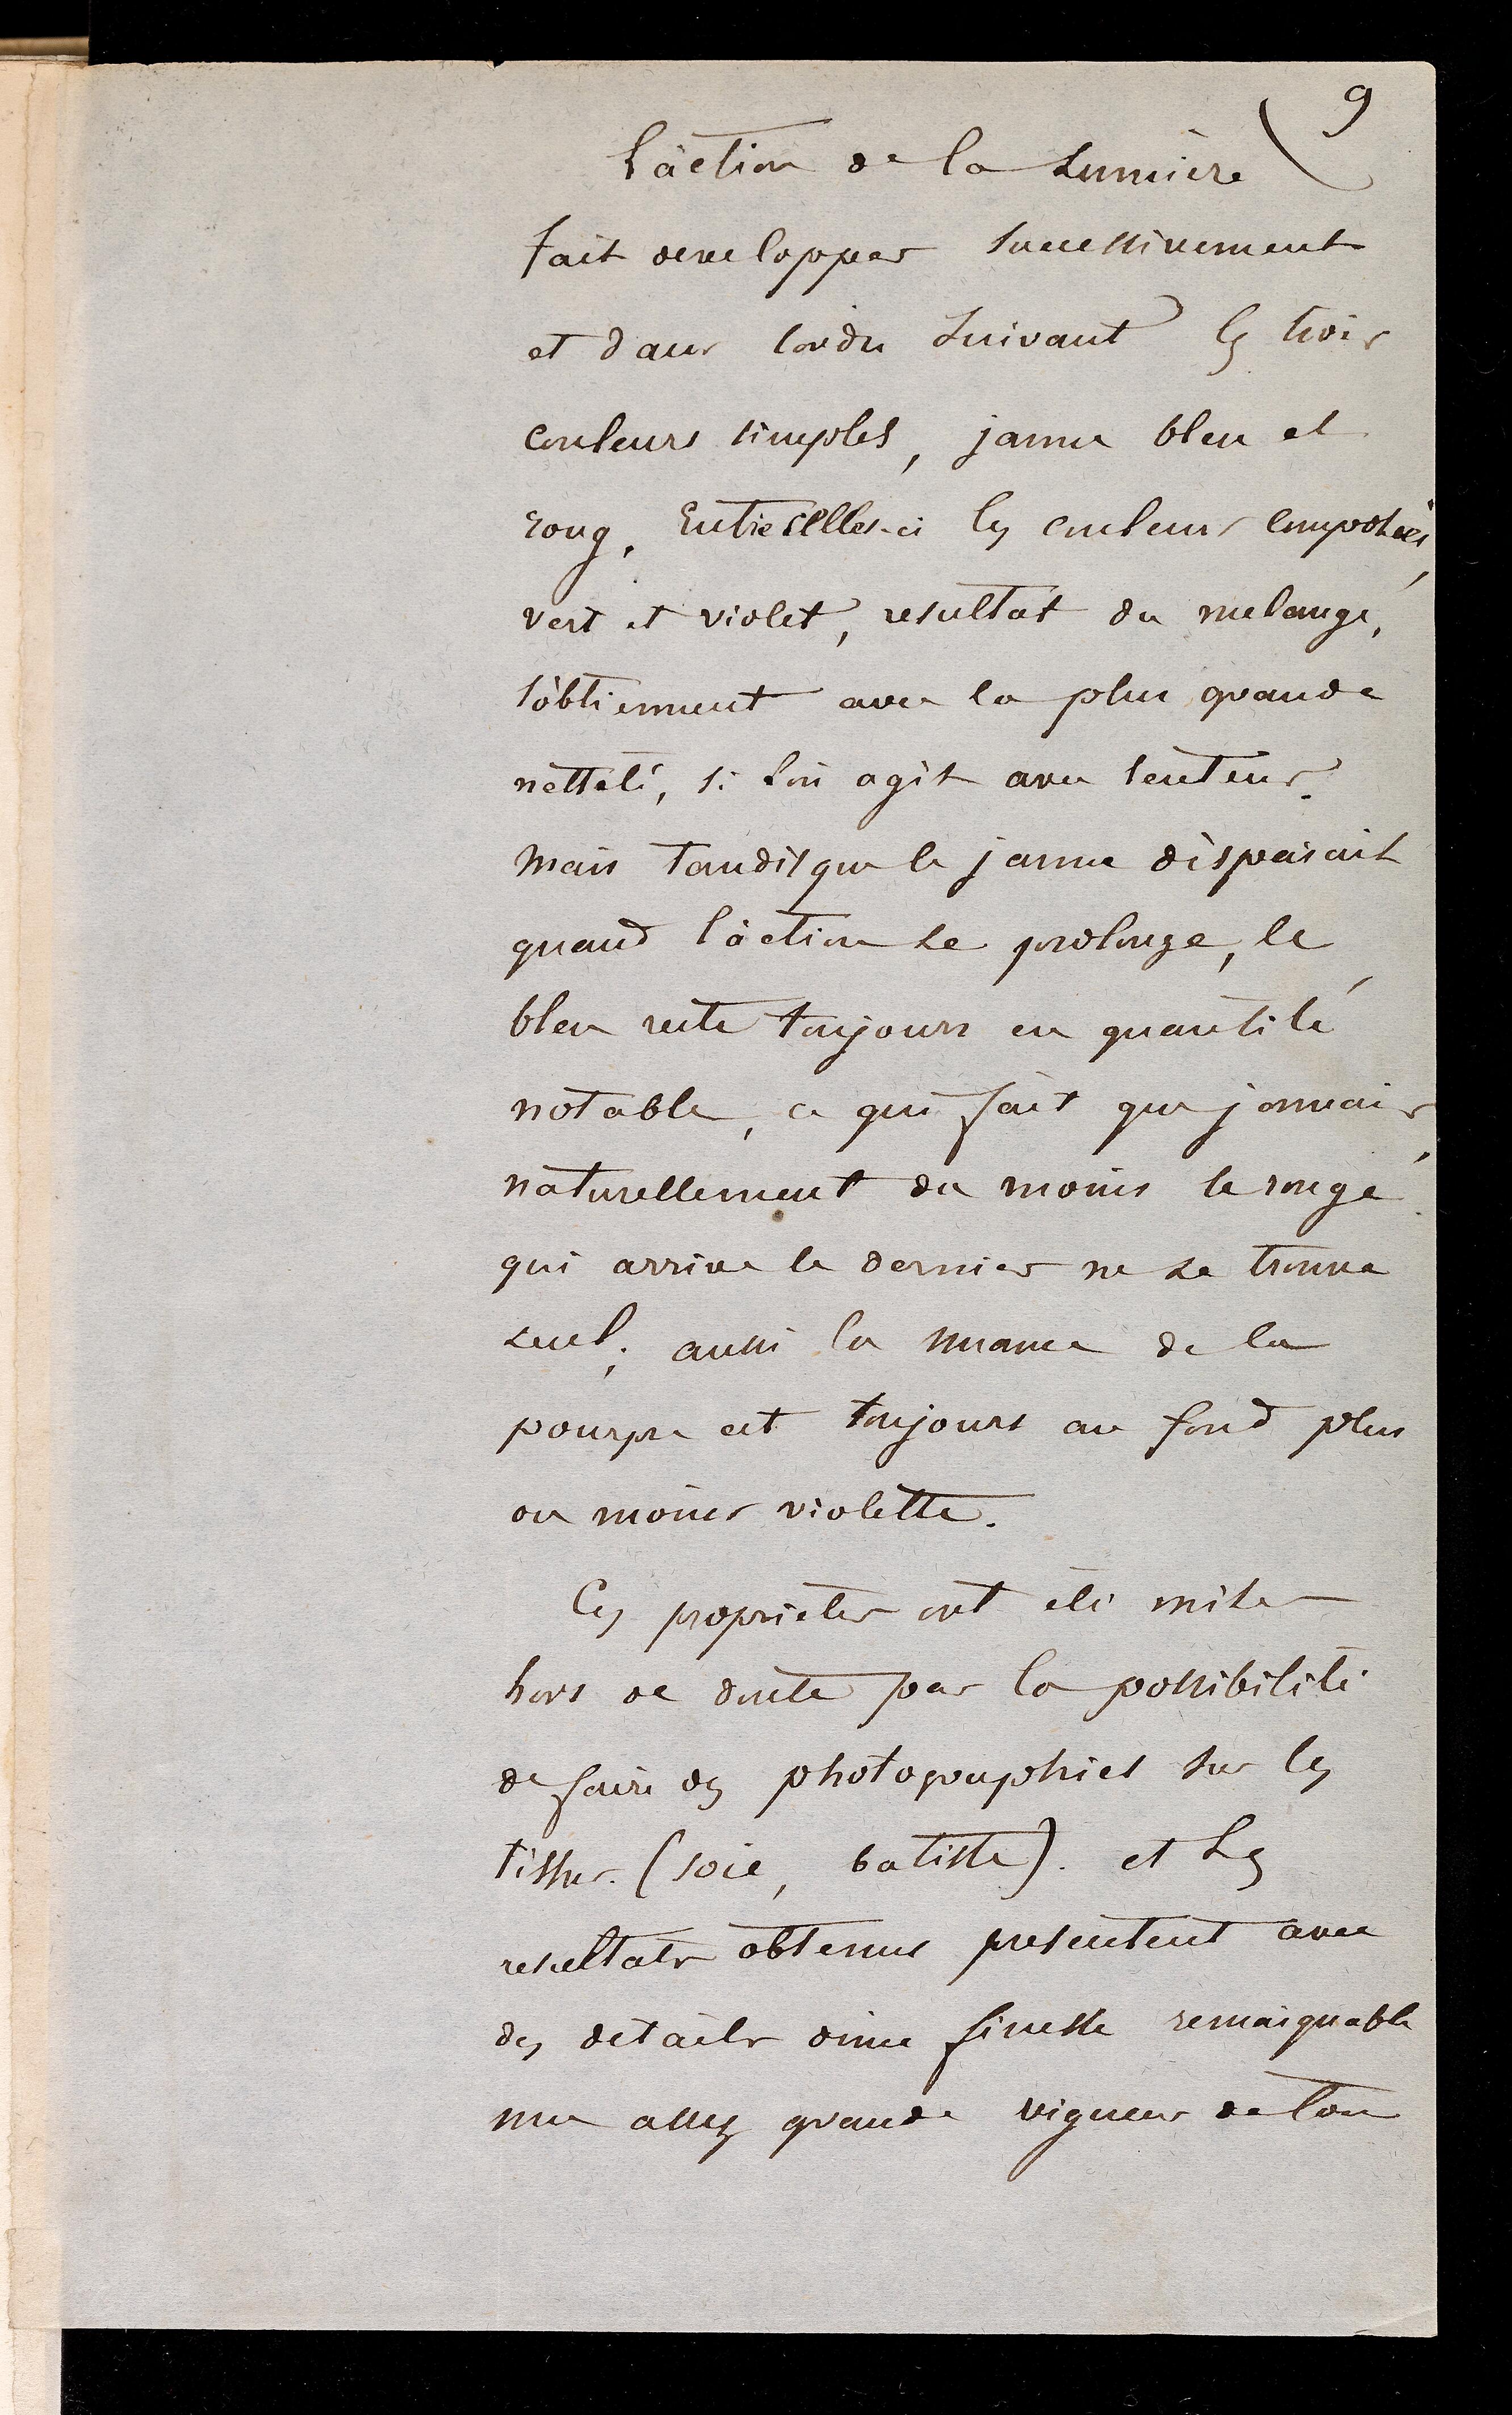 9
L'action de la Lumière
fait developper successivement
et dans l'ordre suivant les trois
couleurs simples, jaune bleu et
rouge, Entre celles-ci les couleurs composées,
vert et violet, resultat du melange,
s'obtiennent avec la plus grande
netteté, si l'on agit avec lenteur.
Mais tandisque le jaune disparait
quand l'action se prolonge, le
bleu reste toujours en quantité
notable, ce qui fait que jamais,
naturellement du moins le rouge
qui arrive le dernier ne se trouve
seul; aussi la nuance de la
pourpre est toujours au fond plus
ou moins violette.
Ces proprietes ont été mises
hors de doute par la possibilité
de faire des photographies sur les
tissus (soie, batiste). et Les
resultats obtenus presentent avec
des details d'une finesse remarquable
une assez grande vigueur de ton